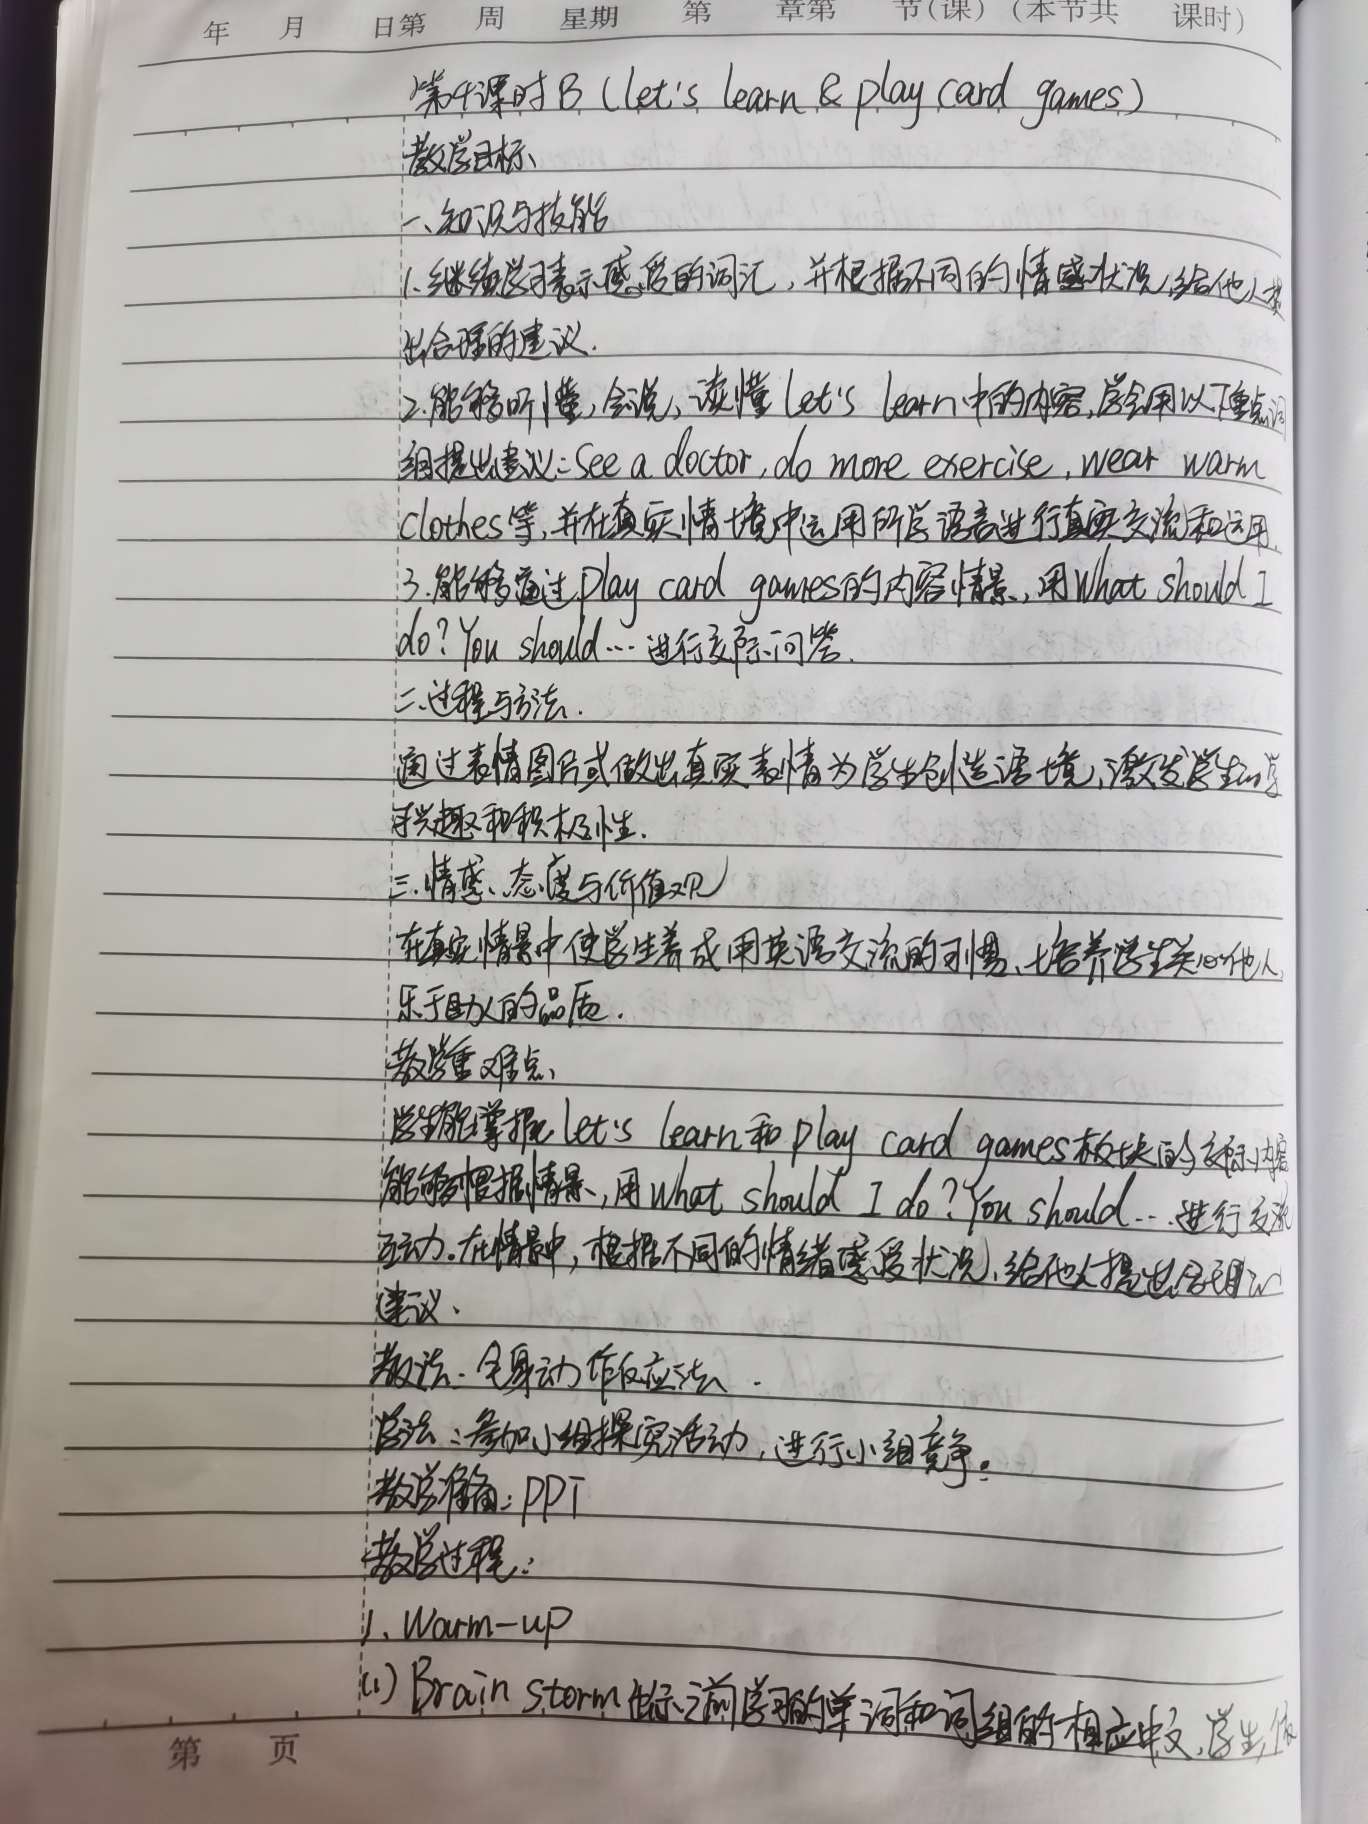 年 月 日第 周 星期 第 章第 节(课) (本节共 课时)
第4课时B (let's learn & play card games)
教学目标、
一、知识与技能
1.继续学习表示感受的词汇,并根据不同的情感状况,给他人提
出合理的建议.
2.能够听懂,会说,读懂let's learn中的内容,学会用以下重点词
组提出建议:see a doctor,do more exercise,wear warm
clothes等,并在真实情境中运用所学语言进行真实交流和运用.
3.能够通过play card games的内容情景,用What should I
do?You should…进行交际问答.
二.过程与方法.
通过表情图片或做出真实表情为学生创造语境,激发学生的学
习兴趣和积极性.
三.情感、态度与价值观
在真实情景中使学生养成用英语交流的习惯、培养学生关心他人,
乐于助人的品质.
教学重难点、
学生能掌握let's learn和play card games板块的交际内容
能够根据情景,用what should I do?You should…进行交流
互动。在情景中,根据不同的情绪感受状况,给他人提出合理的
建议.
教法:全身动作反应法.
学法:参加小组探究活动,进行小组竞争。
教学准备:PPT
教学过程:
1、Warm-up
(1) Brain storm 出示之前学习的单词和词组的相应中文,学生做
第 页